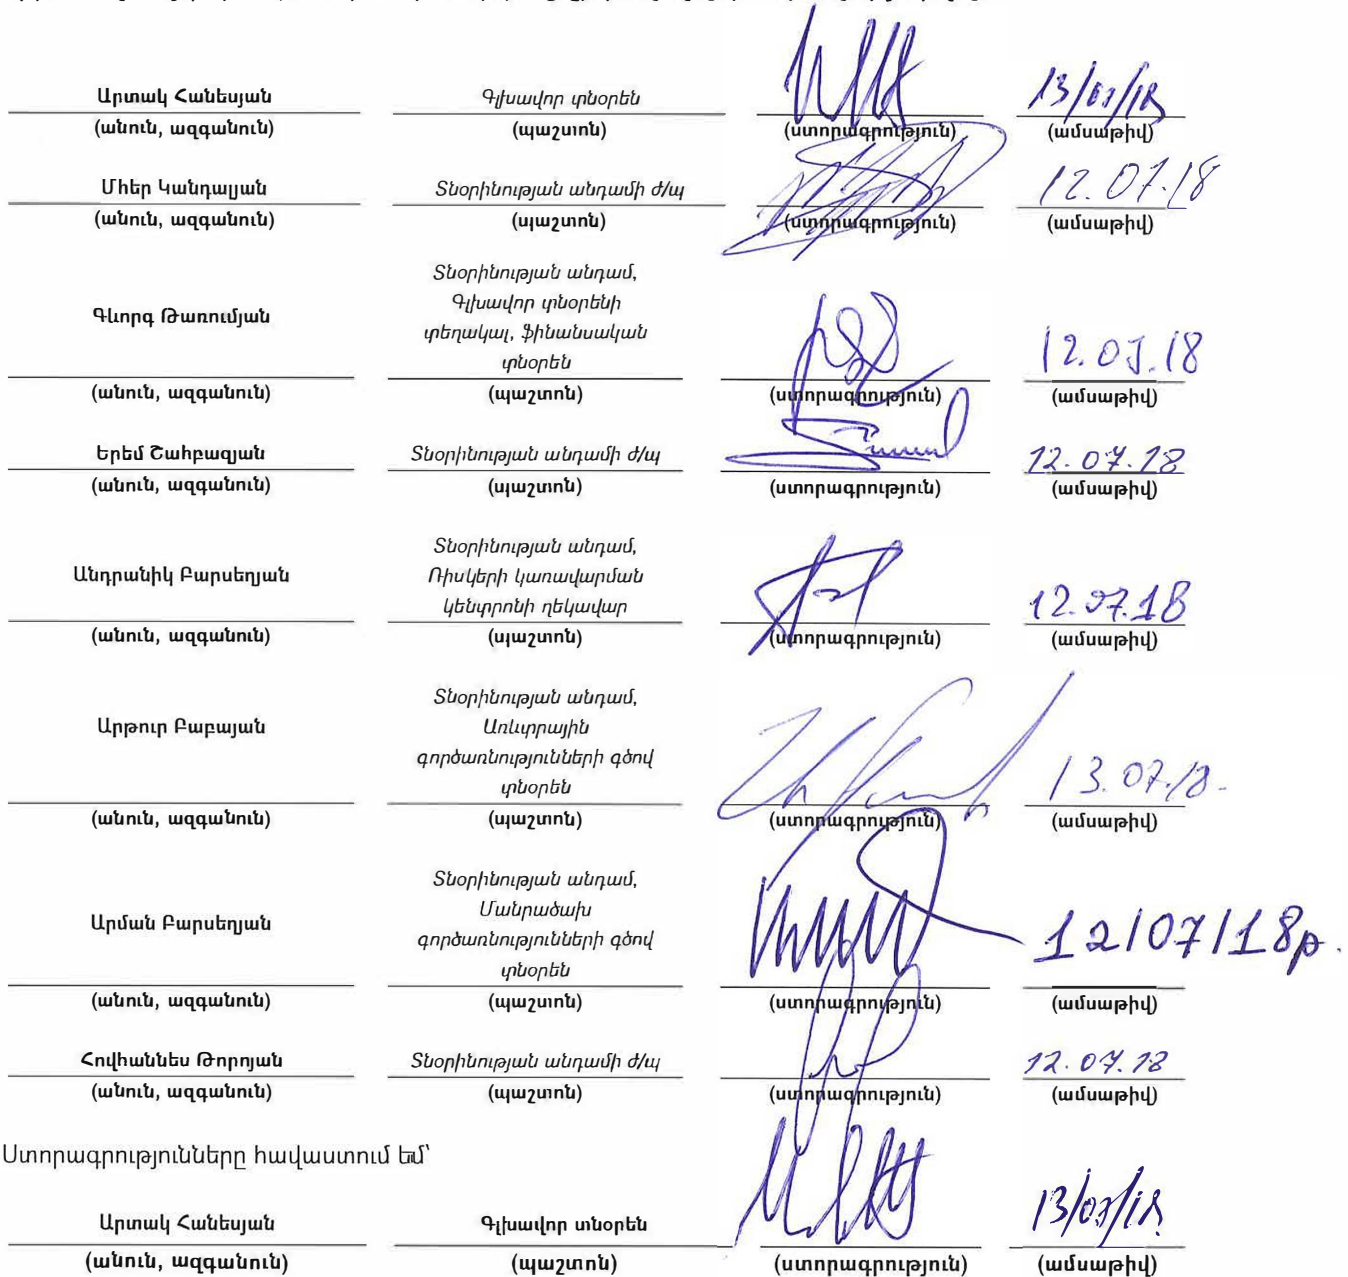 Արտակ Հանեսյան Գլխավոր տնօրեն 13/07/18
(անուն, ազգանուն) (պաշտոն) (ստորագրություն) (ամսաթիվ)
Մհեր Կանդալյան Տնօրինության անդամի ժ/պ 12.07.18
(անուն, ազգանուն) (պաշտոն) (ստորագրություն) (ամսաթիվ)
Տնօրինության անդամ,
Գլխավոր տնօրենի
Գևորգ Թառումյան տեղակալ, ֆինանսական 12.07.18
տնօրեն
(անուն, ազգանուն) (պաշտոն) (ստորագրություն) (ամսաթիվ)
Երեմ Շահբազյան Տնօրինության անդամի ժ/պ 12.07.18
(անուն, ազգանուն) (պաշտոն) (ստորագրություն) (ամսաթիվ)
Տնօրինության անդամ,
Անդրանիկ Բարսեղյան Ռիսկերի կառավարման
կենտրոնի ղեկավար 12.07.18
(անուն, ազգանուն) (պաշտոն) (ստորագրություն) (ամսաթիվ)
Տնօրինության անդամ,
Արթուր Բաբայան Առևտրային
գործառնությունների գծով 13.07.18.
տնօրեն
(անուն, ազգանուն) (պաշտոն) (ստորագրություն) (ամսաթիվ)
Տնօրինության անդամ,
Արման Բարսեղյան Մանրածախ
գործառնությունների գծով 12/07/18թ.
տնօրեն
(անուն, ազգանուն) (պաշտոն) (ստորագրություն) (ամսաթիվ)
Հովհաննես Թորոյան Տնօրինության անդամի ժ/պ 12.07.18
(անուն, ազգանուն) (պաշտոն) (ստորագրություն) (ամսաթիվ)
Ստորագրությունները հավաստում եմ՝
Արտակ Հանեսյան Գլխավոր տնօրեն 13/07/18
(անուն, ազգանուն) (պաշտոն) (ստորագրություն) (ամսաթիվ)